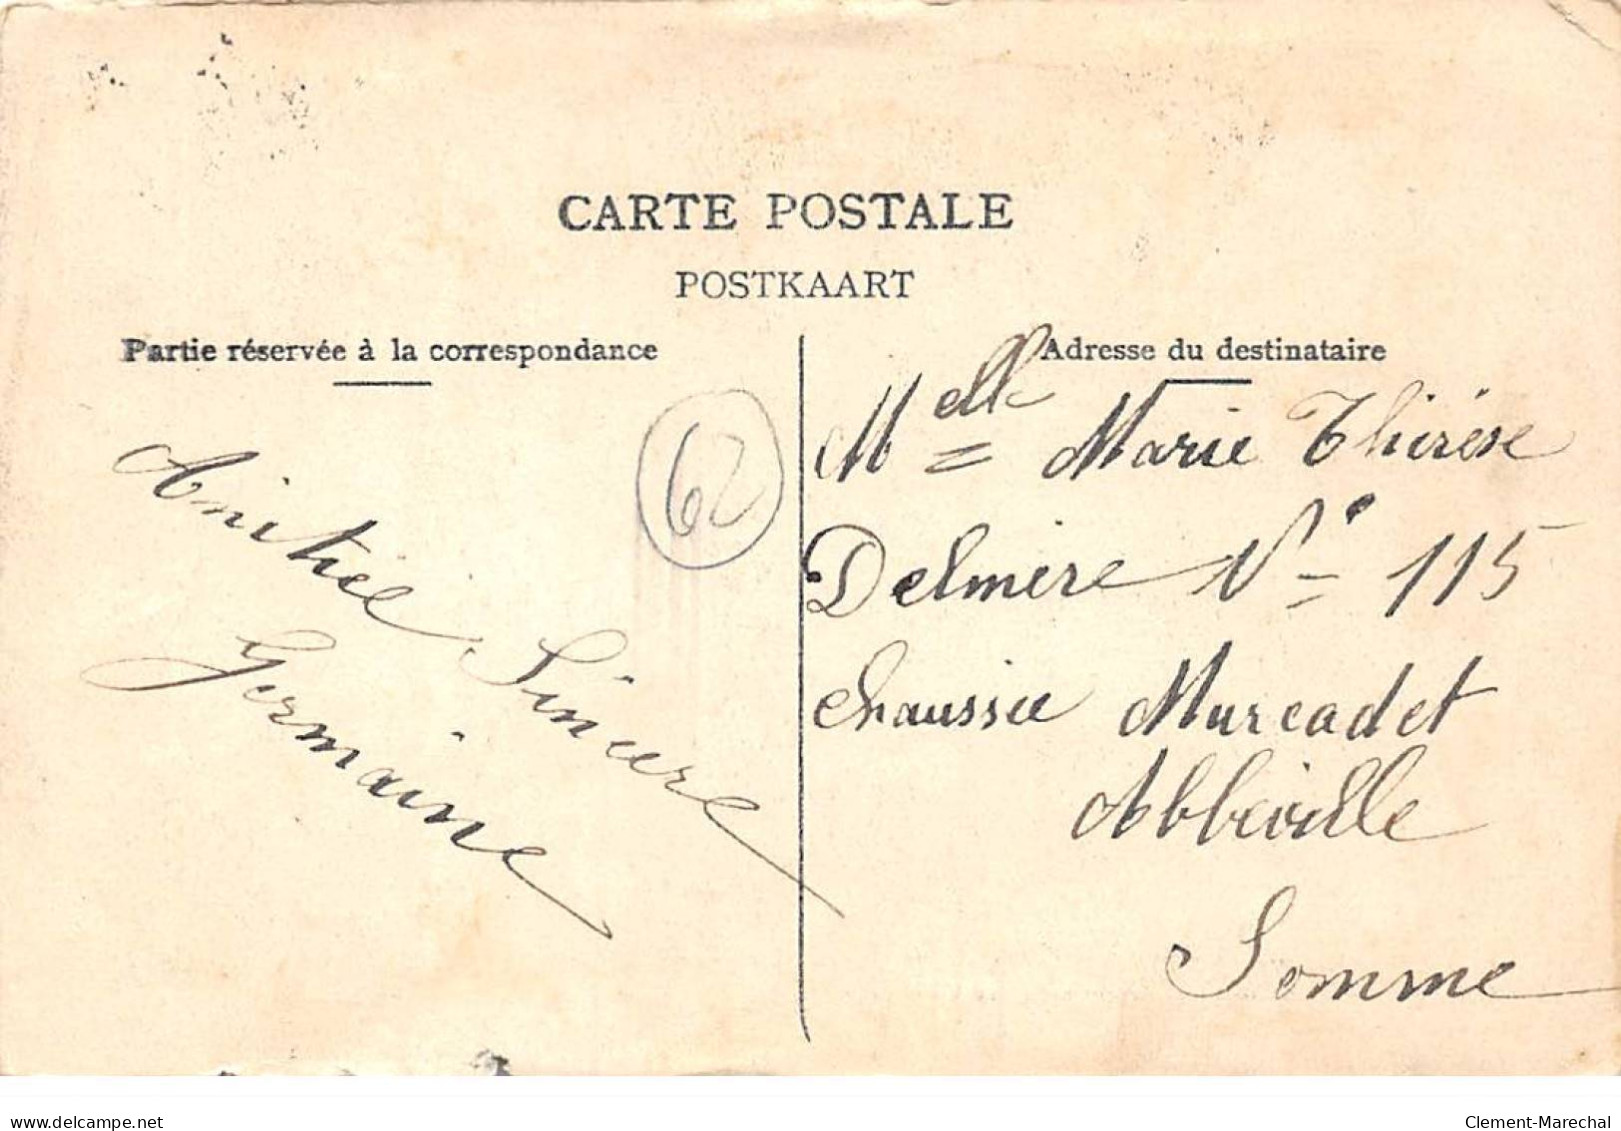 CARTE POSTALE
POSTKAART
Partie réservée à la correspondance
Adresse du destinataire
62
Amitiée Sincere
Germaine
Melle Marie Thérèse
Delmère No 115
chaussée Marcadet
Abbeville
Somme
delcampe.net
Clement-Marechal